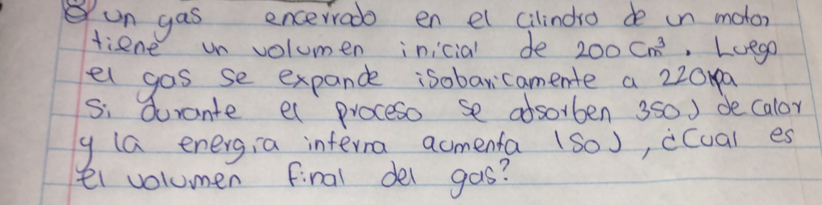 ⑧ un gas encerrado en el cilindro de un motor
tiene un volumen inicial de 200 cm³. Luego
el gas se expande isobaricamente a 220 kpa
Si durante el proceso se absorben 350 J de calor
y la energia interna aumenta 150 J, ¿Cual es
el volumen final del gas?